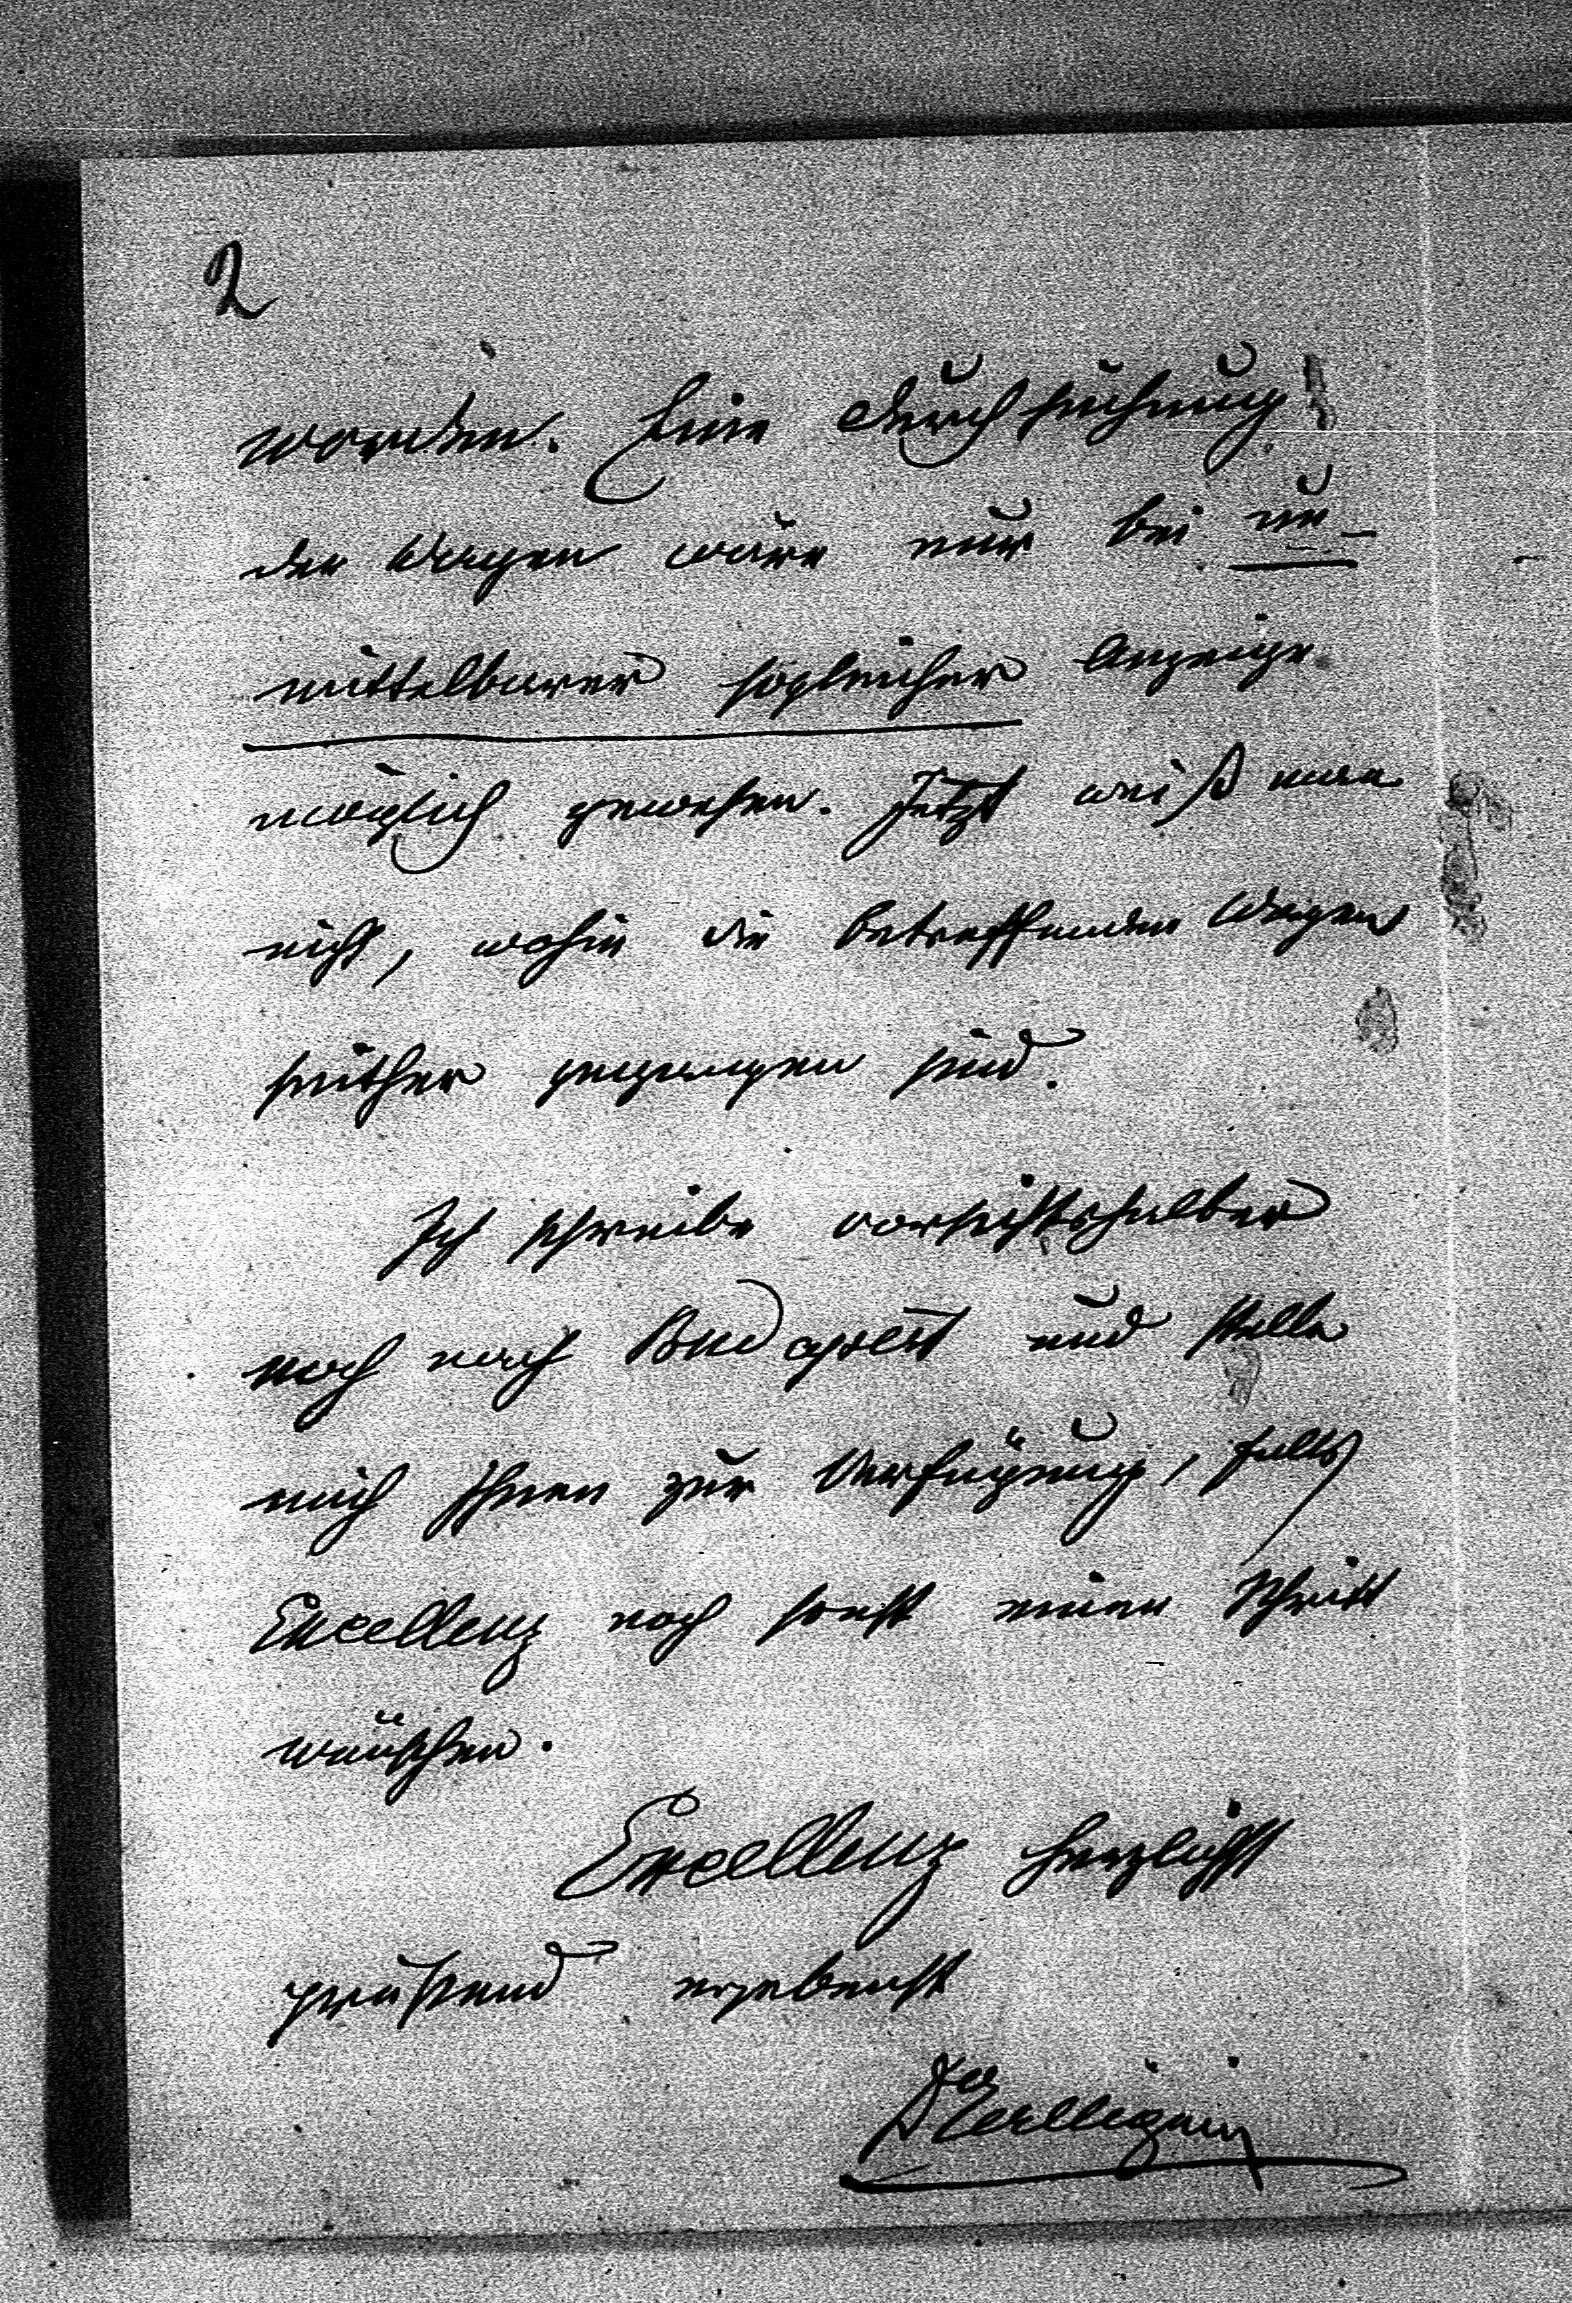 2
worden. Eine Durchsuchung
der Wagen wäre nur bei un-
mittelbarer sogleicher Anzeige
möglich gewesen. Jetzt weiß man
nicht, wohin die betreffenden Wagen
seither gegangen sind.
Ich schreibe vorsichtshalber
noch nach Budapest und stelle
mich Ihnen zur Verfügung, falls
Excellenz noch sonst einen Schritt
wünschen.
Excellenz herzlichst
grüßend ergebenst